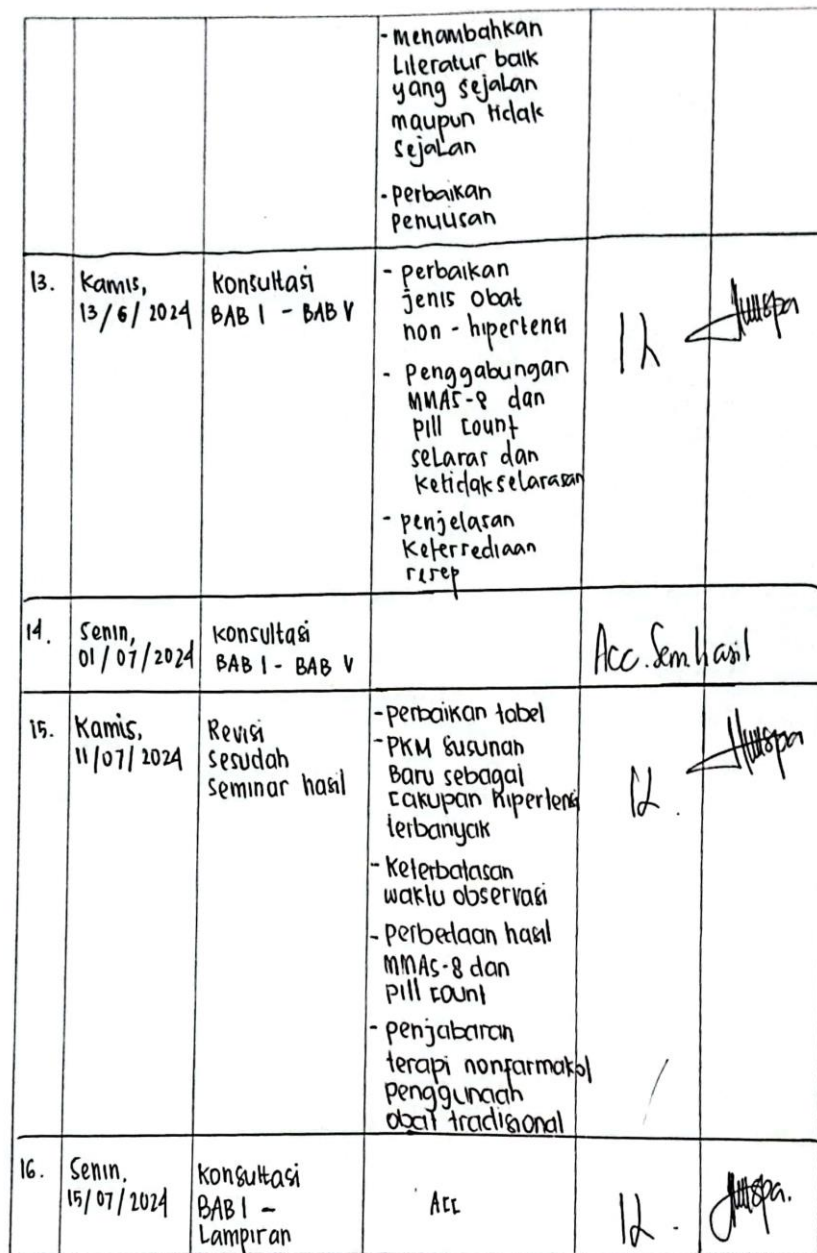 - menambahkan
Literatur baik
yang sejalan
maupun tidak
sejalan
- perbaikan
penulisan
13.
Kamis,
13/6/2024
Konsultasi
BAB I - BAB V
- perbaikan
jenis obat
non-hipertensi
- Penggabungan
MMAS-8 dan
pill count
selaras dan
ketidakselarasan
- penjelasan
ketersediaan
resep
14.
Senin,
01/07/2024
konsultasi
BAB I - BAB V
Acc. Semhasil
15.
Kamis,
11/07/2024
Revisi
Sesudah
Seminar hasil
- perbaikan tabel
- PKM Susunan
Baru sebagai
cakupan hipertensi
terbanyak
- Keterbatasan
waktu observasi
- perbedaan hasil
MMAS-8 dan
pill count
- penjabaran
terapi nonfarmakol
penggunaan
obat tradisional
16.
Senin,
15/07/2024
konsultasi
BAB I -
Lampiran
Acc